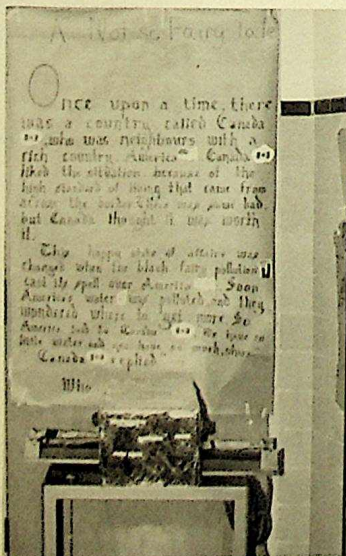 A Not so Fairy Tale
Once upon a time, there
was a country called Canada
, who was neighbours with a
rich country, America. Canada
liked the situation because of the
high standard of living that came from
across the border. There was some bad,
but Canada thought it was worth
it.
This happy state of affairs was
changed when the black fairy pollution
cast its spell over America. Soon
America's water was polluted and they
wondered where to get more. So
America said to Canada "We have so
little water and you have so much, share."
Canada replied"
Who